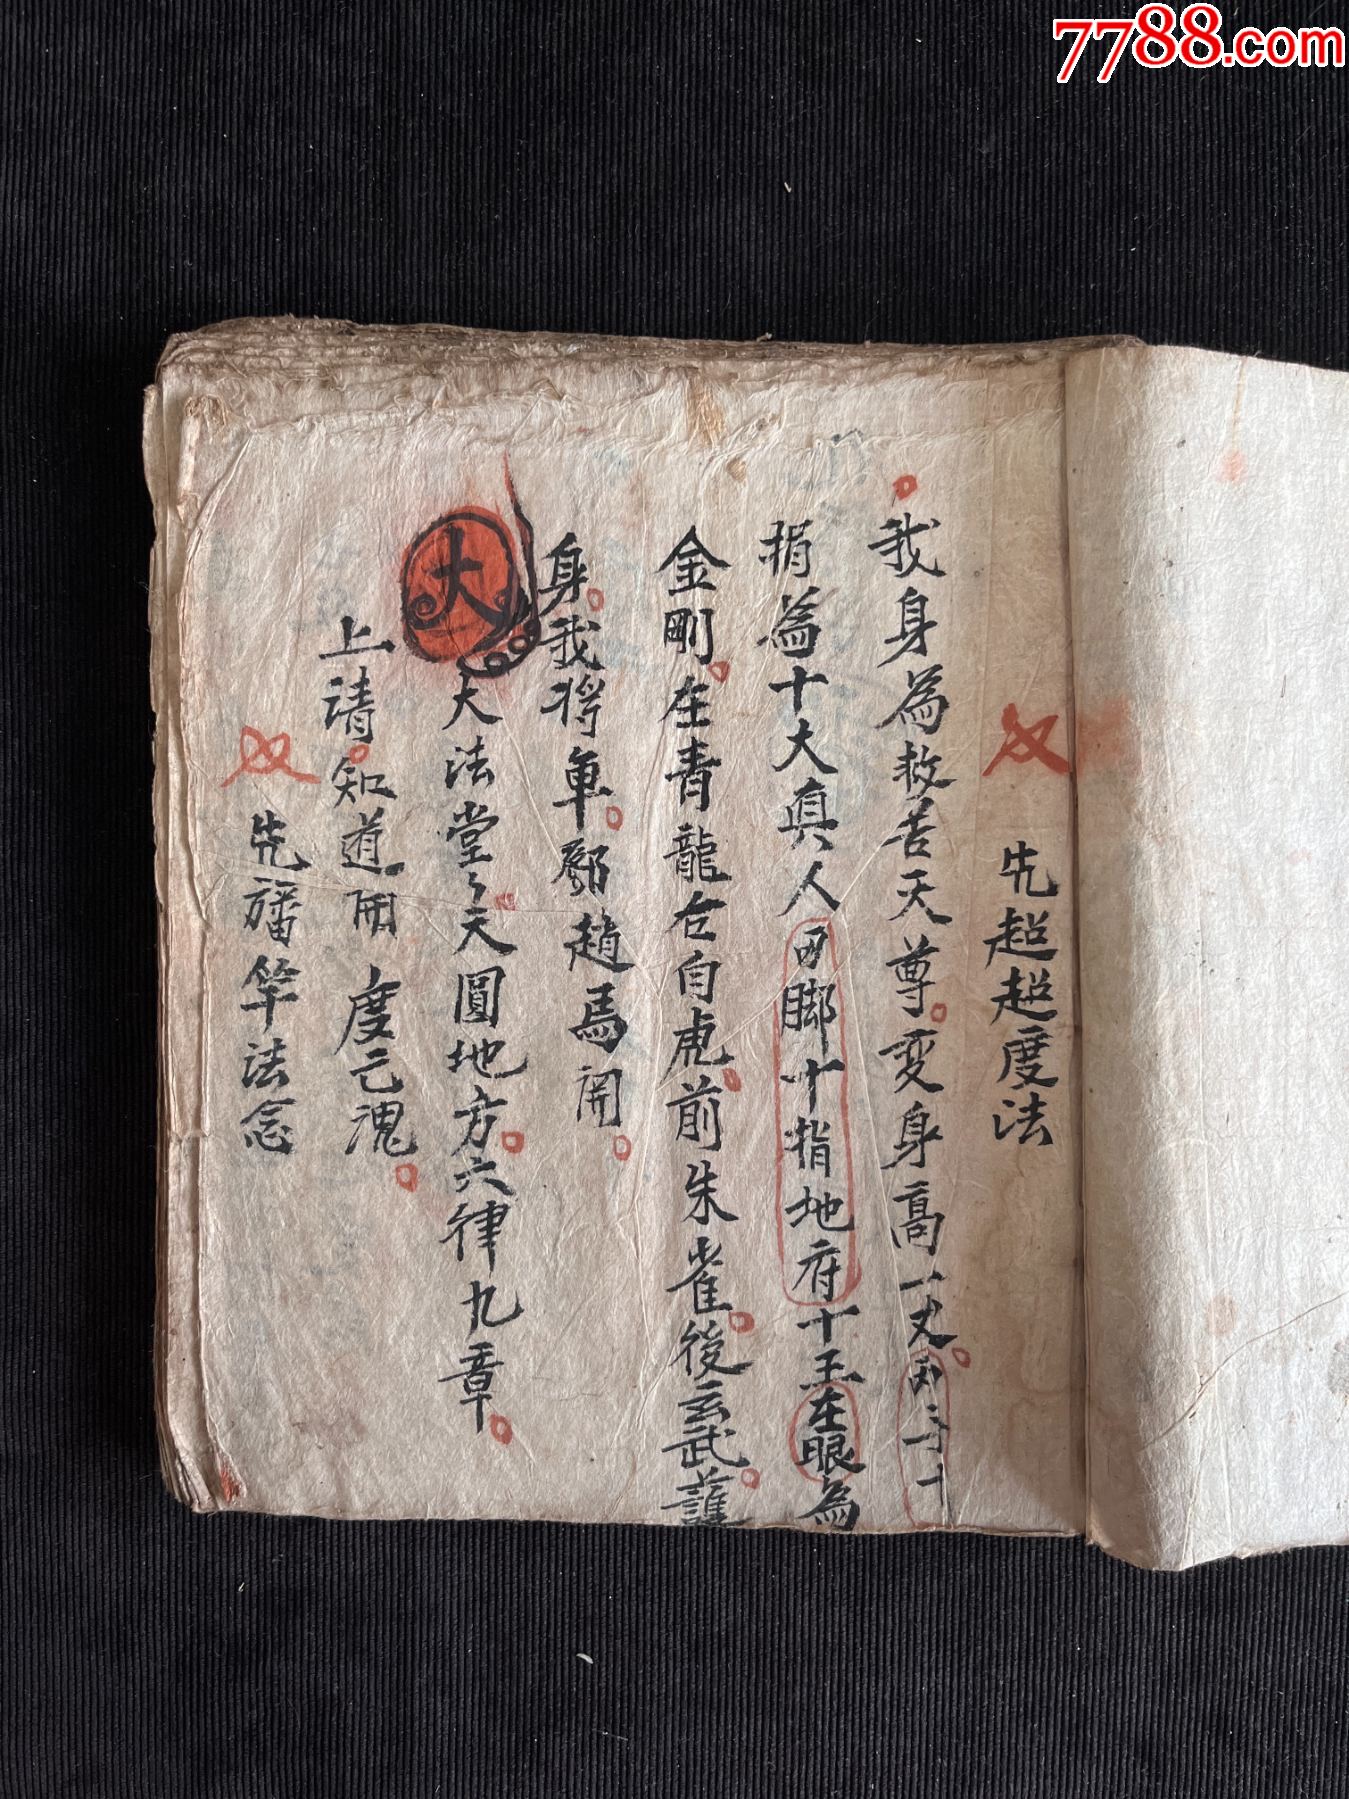 7788.com
先超超度法
我身為救苦天尊变身高一丈
指為十大真人 脚十指地府十王左眼為
金剛在青龍右白虎前朱雀後玄武護
身我将軍鄧趙馬 
大
大法堂々天圓地方六律九章
上請知道 度亡魂
先旛竿法念